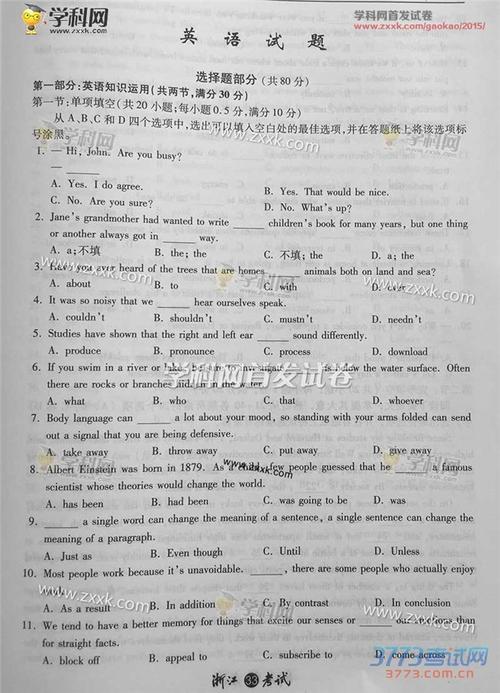 学科网
www.zxxk.com
学科网首发试卷
www.zxxk.com/gaokao/2015/
英语试题
选择题部分 (共80分)
第一部分:英语知识运用(共两节,满分30分)
第一节:单项填空(共20小题;每小题0.5分,满分10分)
从A、B、C和D四个选项中,选出可以填入空白处的最佳选项,并在答题纸上将该选项标
号涂黑。
1. — Hi, John. Are you busy?
— ______
A. Yes. I do agree. B. Yes. That would be nice.
C. No. Are you sure? D. No. What's up?
2. Jane's grandmother had wanted to write ______ children's book for many years, but one thing
or another always got in ______ way.
A. a;不填 B. the; the C. 不填; the D. a; the
3. Have you ever heard of the trees that are homes ______ animals both on land and sea?
A. about B. to C. with D. over
4. It was so noisy that we ______ hear ourselves speak.
A. couldn't B. shouldn't C. mustn't D. needn't
5. Studies have shown that the right and left ear ______ sound differently.
A. produce B. pronounce C. process D. download
6. If you swim in a river or lake, be is below the water surface. Often
there are rocks or branches in the water.
B. who C. that D. whoever
7. Body language can ______ a lot about your mood, so standing with your arms folded can send
out a signal that you are being defensive.
A. take away B. throw away C. put away D. give away
8. Albert Einstein was born in 1879. As a few people guessed that he ______ a famous
scientist whose theories would change the world.
A. has been B. had been C. was going to be D. was
9. ______ a single word can change the meaning of a sentence, a single sentence can change the
meaning of a paragraph.
A. Just as B. Even though C. Until D. Unless
10. Most people work because it's unavoidable. ______, there are some people who actually enjoy
A. As a result B. In addition C. By contrast D. In conclusion
11. We tend to have a better memory for things that excite our senses or ______ our emotions than
for straight facts.
A. block off B. appeal to C. subscribe to D. come across
浙江 考试
3773考试网
www.3773.com